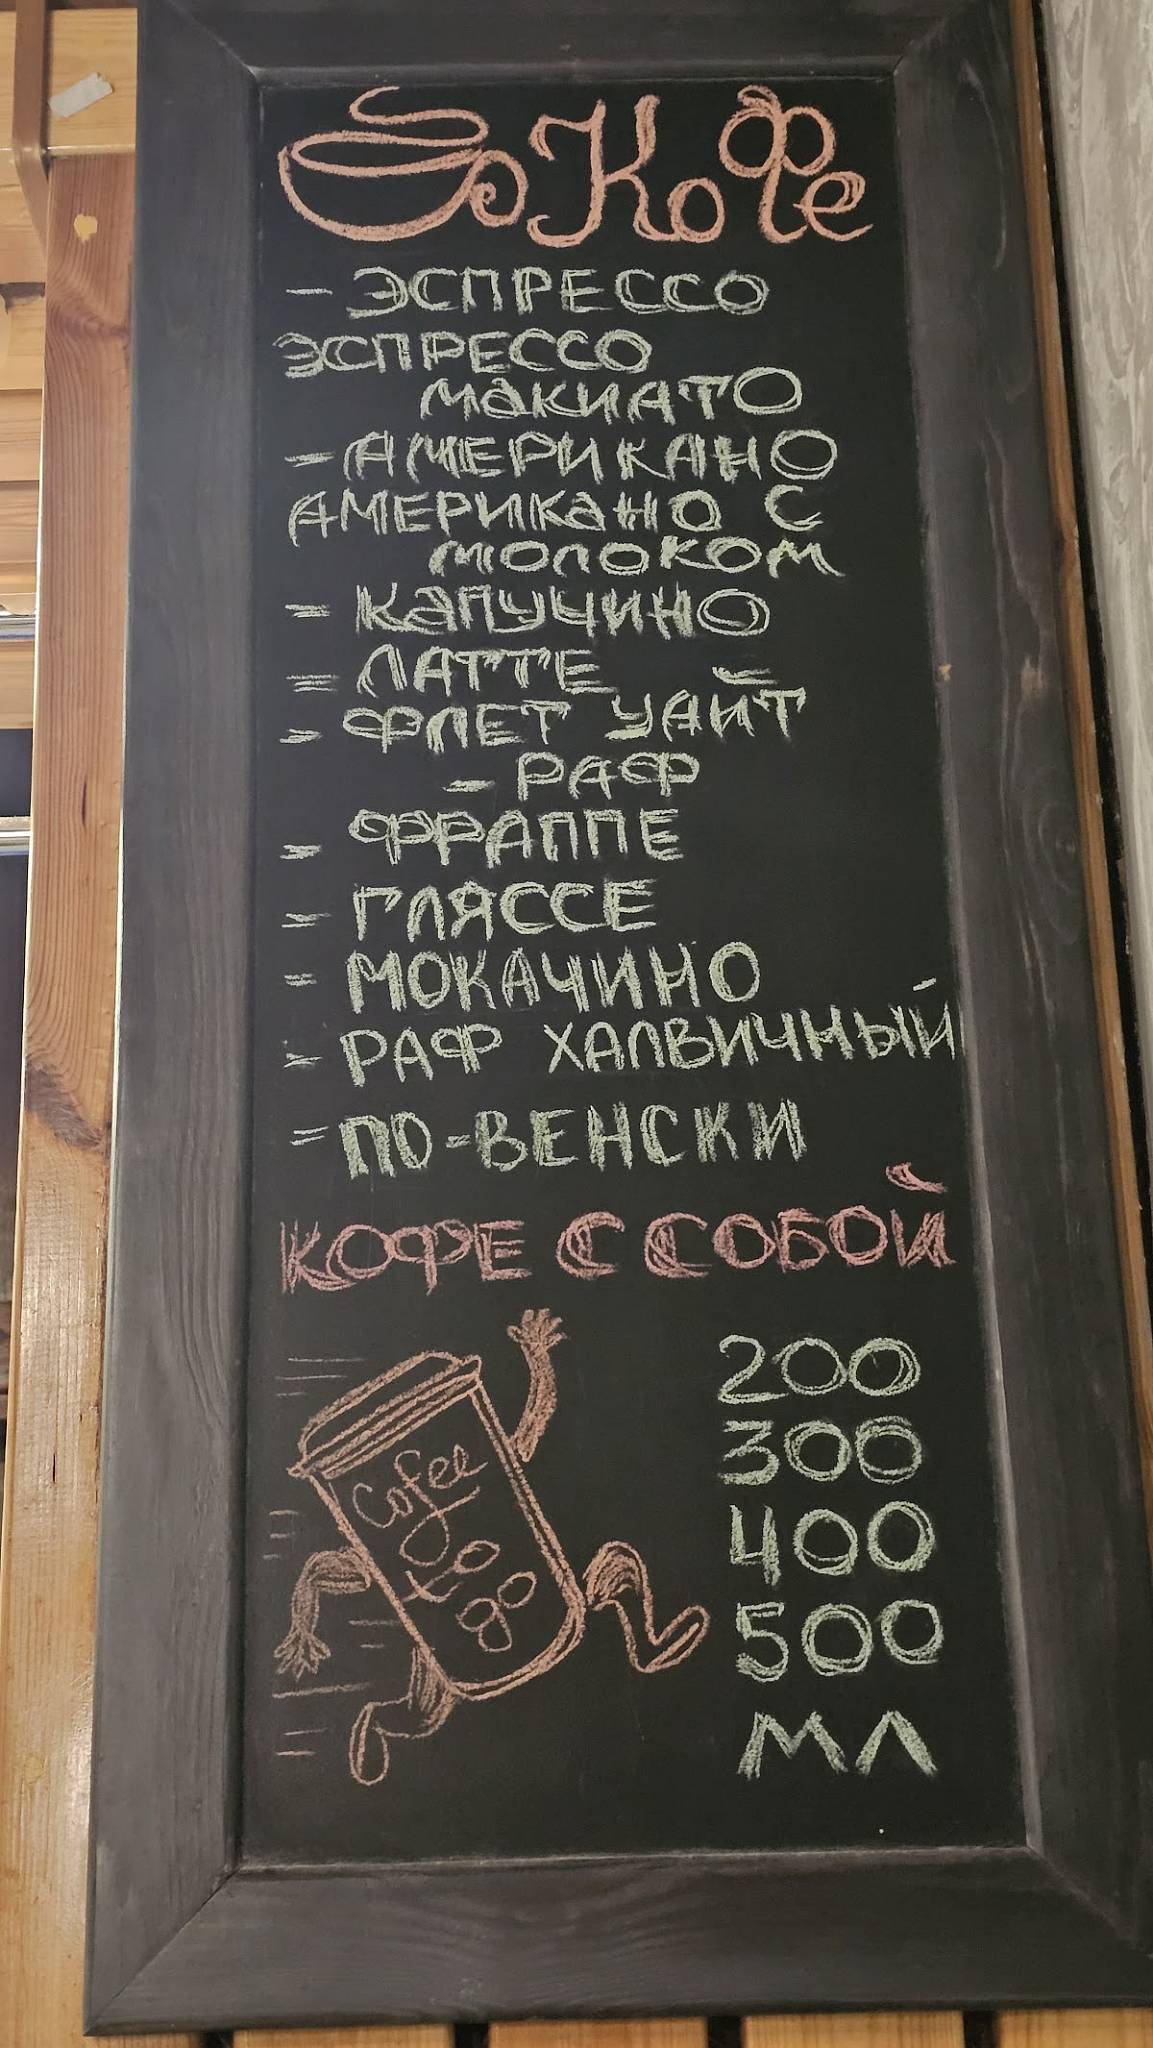 Кофе
- ЭСПРЕССО
ЭСПРЕССО
МАКИАТО
- АМЕРИКАНО
АМЕРИКАНО С
МОЛОКОМ
= КАПУЧИНО
= ЛАТТЕ
= ФЛЕТ УАЙТ
- РАФ
= ФРАППЕ
= ГЛЯССЕ
= МОКАЧИНО
= РАФ ХАЛВИЧНЫЙ
= ПО-ВЕНСКИ
КОФЕ С СОБОЙ
Cofee
to
go
200
300
400
500
МЛ